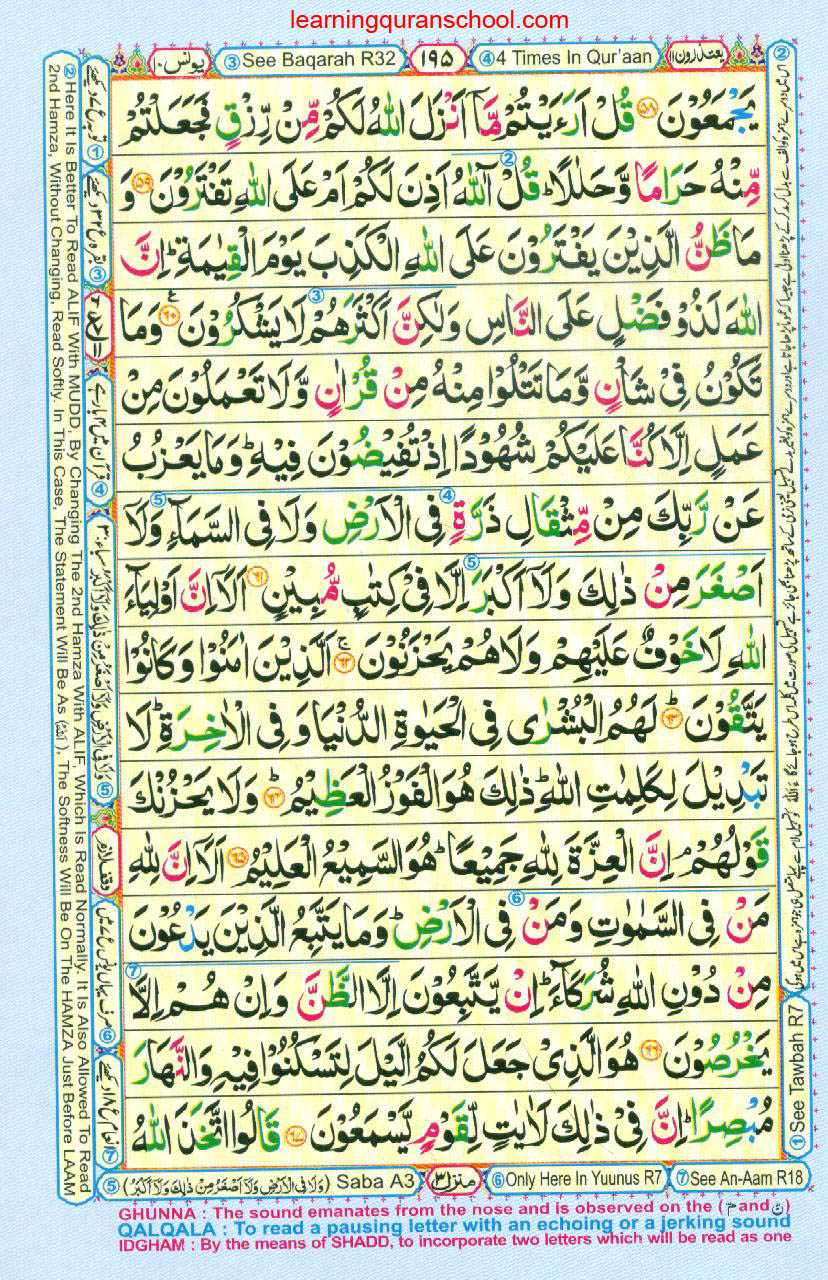 learningquranschool.com
یعتذرون ۱۱
④ 4 Times In Qur'aan
۱۹۵
③ See Baqarah R32
یونس ۱۰
یَجْمَعُوْنَ ﴿۵۸﴾ قُلْ اَرَءَیْتُمْ مَّاۤ اَنْزَلَ اللّٰهُ لَكُمْ مِّنْ رِّزْقٍ فَجَعَلْتُمْ
مِّنْهُ حَرَامًا وَّحَلٰلًا ؕ قُلْ آٰللّٰهُ اَذِنَ لَكُمْ اَمْ عَلَی اللّٰهِ تَفْتَرُوْنَ ﴿۵۹﴾ وَ
مَا ظَنُّ الَّذِیْنَ یَفْتَرُوْنَ عَلَی اللّٰهِ الْكَذِبَ یَوْمَ الْقِیٰمَةِ ؕ اِنَّ
اللّٰهَ لَذُوْ فَضْلٍ عَلَی النَّاسِ وَلٰكِنَّ اَكْثَرَهُمْ لَا یَشْكُرُوْنَ ﴿۶۰﴾ وَمَا
تَكُوْنُ فِیْ شَاْنٍ وَّمَا تَتْلُوْا مِنْهُ مِنْ قُرْاٰنٍ وَّلَا تَعْمَلُوْنَ مِنْ
عَمَلٍ اِلَّا كُنَّا عَلَیْكُمْ شُهُوْدًا اِذْ تُفِیْضُوْنَ فِیْهِ ؕ وَمَا یَعْزُبُ
عَنْ رَّبِّكَ مِنْ مِّثْقَالِ ذَرَّةٍ فِی الْاَرْضِ وَلَا فِی السَّمَآءِ وَلَاۤ
اَصْغَرَ مِنْ ذٰلِكَ وَلَاۤ اَكْبَرَ اِلَّا فِیْ كِتٰبٍ مُّبِیْنٍ ﴿۶۱﴾ اَلَاۤ اِنَّ اَوْلِیَآءَ
اللّٰهِ لَا خَوْفٌ عَلَیْهِمْ وَلَا هُمْ یَحْزَنُوْنَ ﴿۶۲﴾ الَّذِیْنَ اٰمَنُوْا وَكَانُوْا
یَتَّقُوْنَ ﴿۶۳﴾ لَهُمُ الْبُشْرٰی فِی الْحَیٰوةِ الدُّنْیَا وَفِی الْاٰخِرَةِ ؕ لَا
تَبْدِیْلَ لِكَلِمٰتِ اللّٰهِ ؕ ذٰلِكَ هُوَ الْفَوْزُ الْعَظِیْمُ ﴿۶۴﴾ وَلَا یَحْزُنْكَ
قَوْلُهُمْ ۘ اِنَّ الْعِزَّةَ لِلّٰهِ جَمِیْعًا ؕ هُوَ السَّمِیْعُ الْعَلِیْمُ ﴿۶۵﴾ اَلَاۤ اِنَّ لِلّٰهِ
مَنْ فِی السَّمٰوٰتِ وَمَنْ فِی الْاَرْضِ ؕ وَمَا یَتَّبِعُ الَّذِیْنَ یَدْعُوْنَ
مِنْ دُوْنِ اللّٰهِ شُرَكَآءَ ؕ اِنْ یَّتَّبِعُوْنَ اِلَّا الظَّنَّ وَاِنْ هُمْ اِلَّا
یَخْرُصُوْنَ ﴿۶۶﴾ هُوَ الَّذِیْ جَعَلَ لَكُمُ الَّیْلَ لِتَسْكُنُوْا فِیْهِ وَالنَّهَارَ
مُبْصِرًا ؕ اِنَّ فِیْ ذٰلِكَ لَاٰیٰتٍ لِّقَوْمٍ یَّسْمَعُوْنَ ﴿۶۷﴾ قَالُوا اتَّخَذَ اللّٰهُ
① See Tawbah R7
② Here It Is Better To Read ALIF With MUDD, By Changing The 2nd Hamza With ALIF, Which Is Read Normally. It Is Also Allowed To Read
2nd Hamza, Without Changing, Read Softly. In This Case, The Statement Will Be As (ءَاَللّٰهُ), The Softness Will Be On The HAMZA Just Before LAAM
⑤ (وَلَا فِی الْاَرْضِ وَلَاۤ اَصْغَرُ مِنْ ذٰلِكَ وَلَاۤ اَكْبَرُ) Saba A3
منزل ۳
⑥ Only Here In Yuunus R7
⑦ See An-Aam R18
GHUNNA : The sound emanates from the nose and is observed on the (مّ and نّ)
QALQALA : To read a pausing letter with an echoing or a jerking sound
IDGHAM : By the means of SHADD, to incorporate two letters which will be read as one